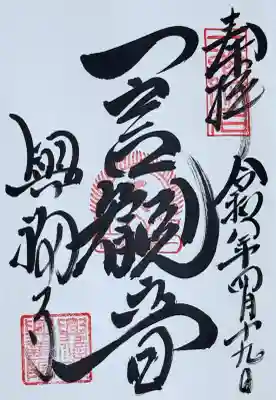 奉拝
令和
年四月十九日
一言観音
興福寺